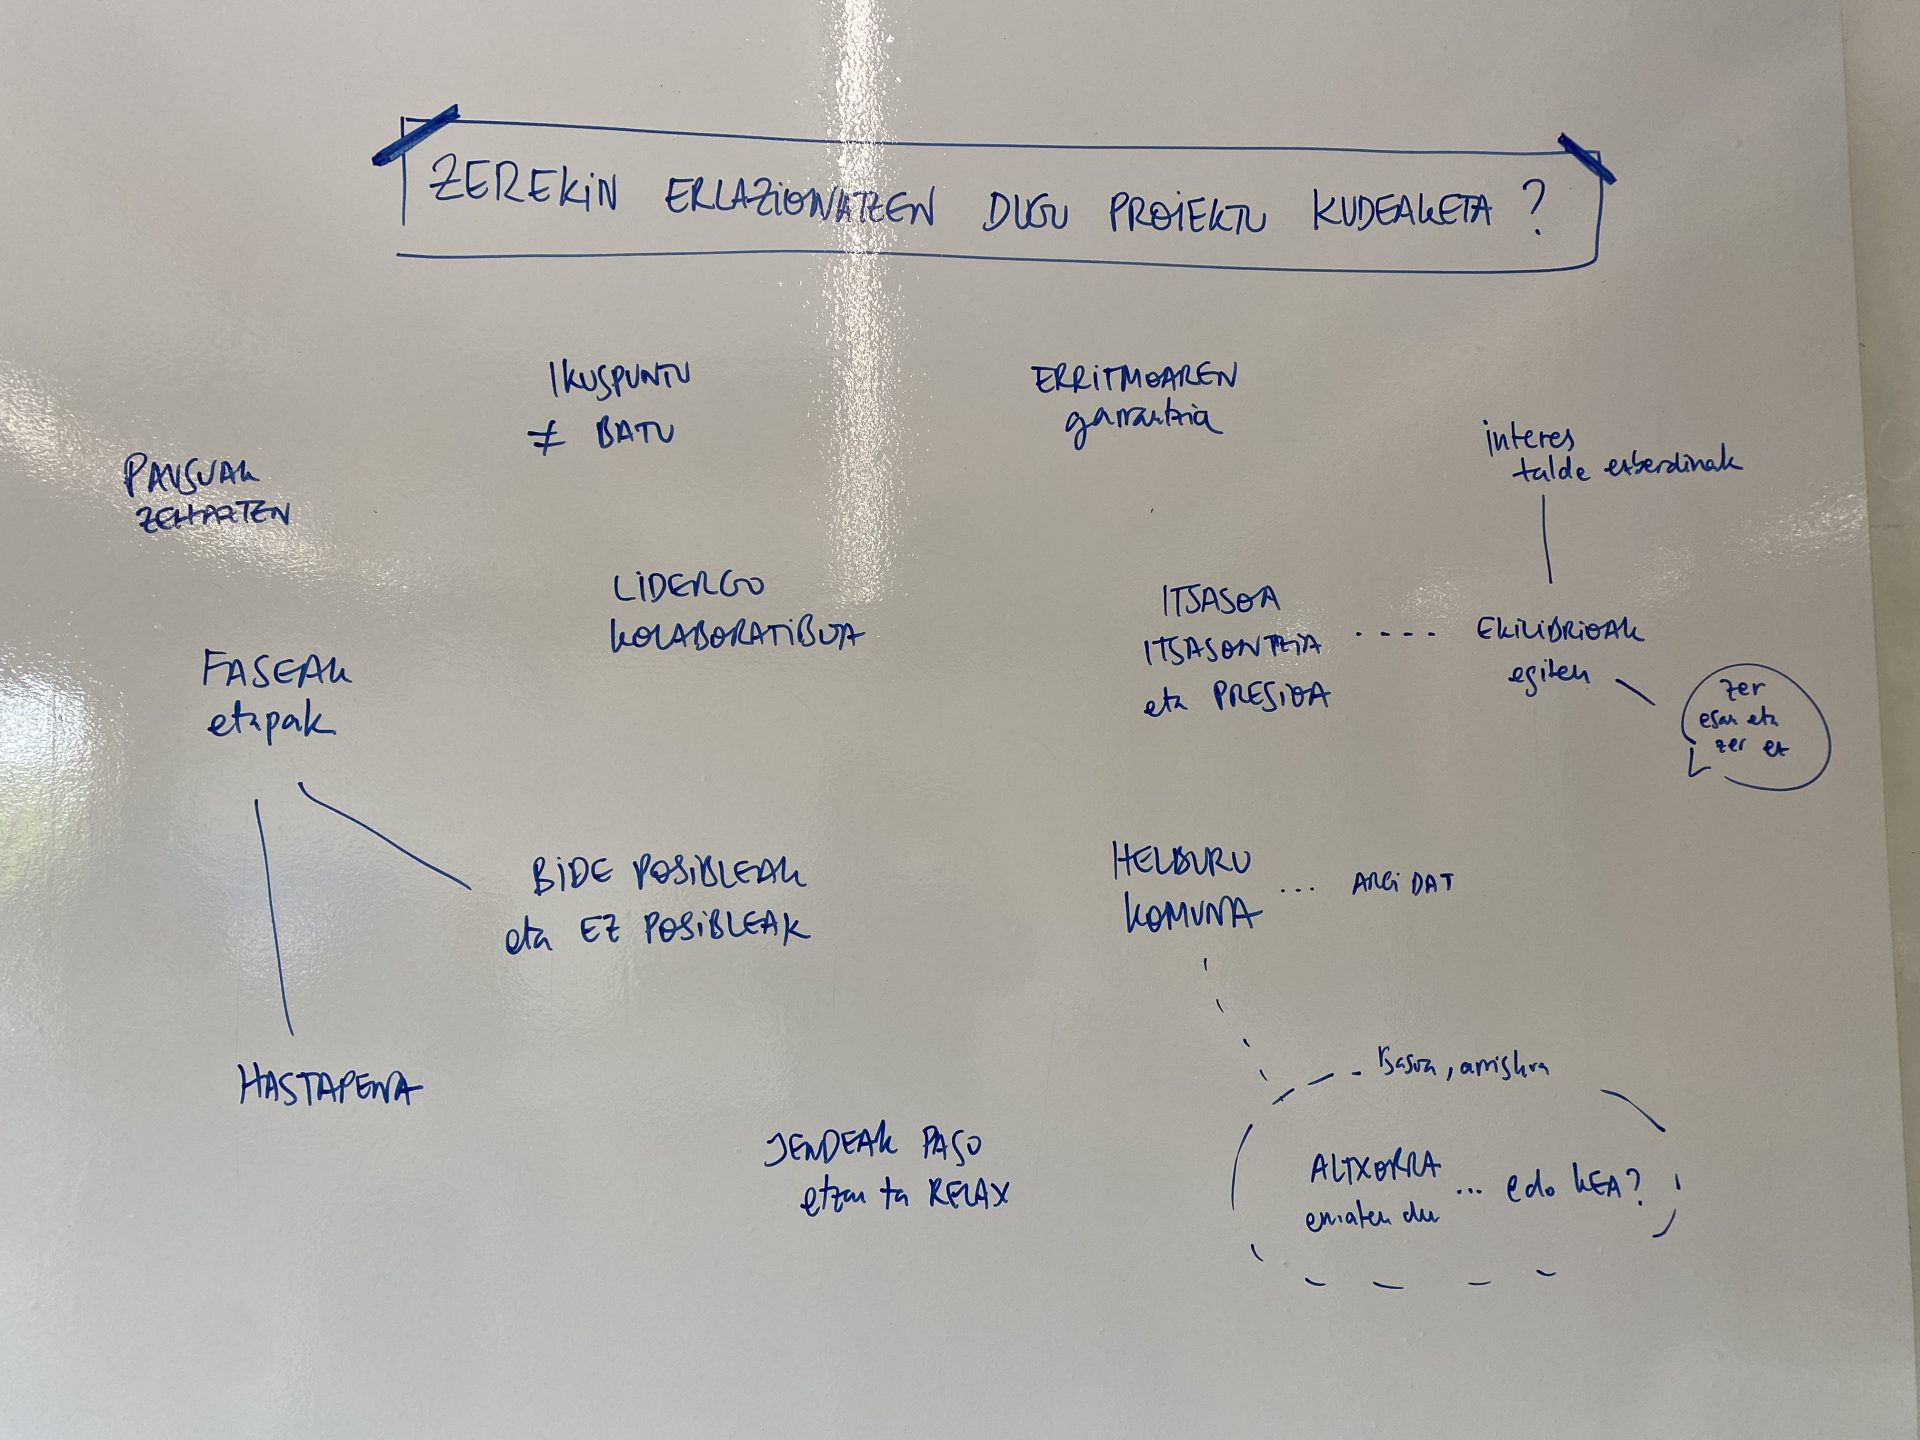 ZEREKIN ERLAZIONATZEN DUGU PROIEKTU KUDEAKETA ?
IKUSPUNTU
≠ BATU
ERRITMOAREN
garrantzia
interes
talde ezberdinak
PAUSUAK
ZEHAZTEN
LIDERGO
KOLABORATIBOA
ITSASOA
ITSASONTZIA
eta PRESIOA
....
EKILIBRIOAK
egiten
zer
esan eta
zer ez
FASEAK
etapak
BIDE POSIBLEAK
eta EZ POSIBLEAK
HELBURU
KOMUNA
... ARGI DAT
HASTAPENA
itsasoa, arriskua
JENDEAK PASO
etzan ta RELAX
ALTXORRA
ematen du
... edo KEA?